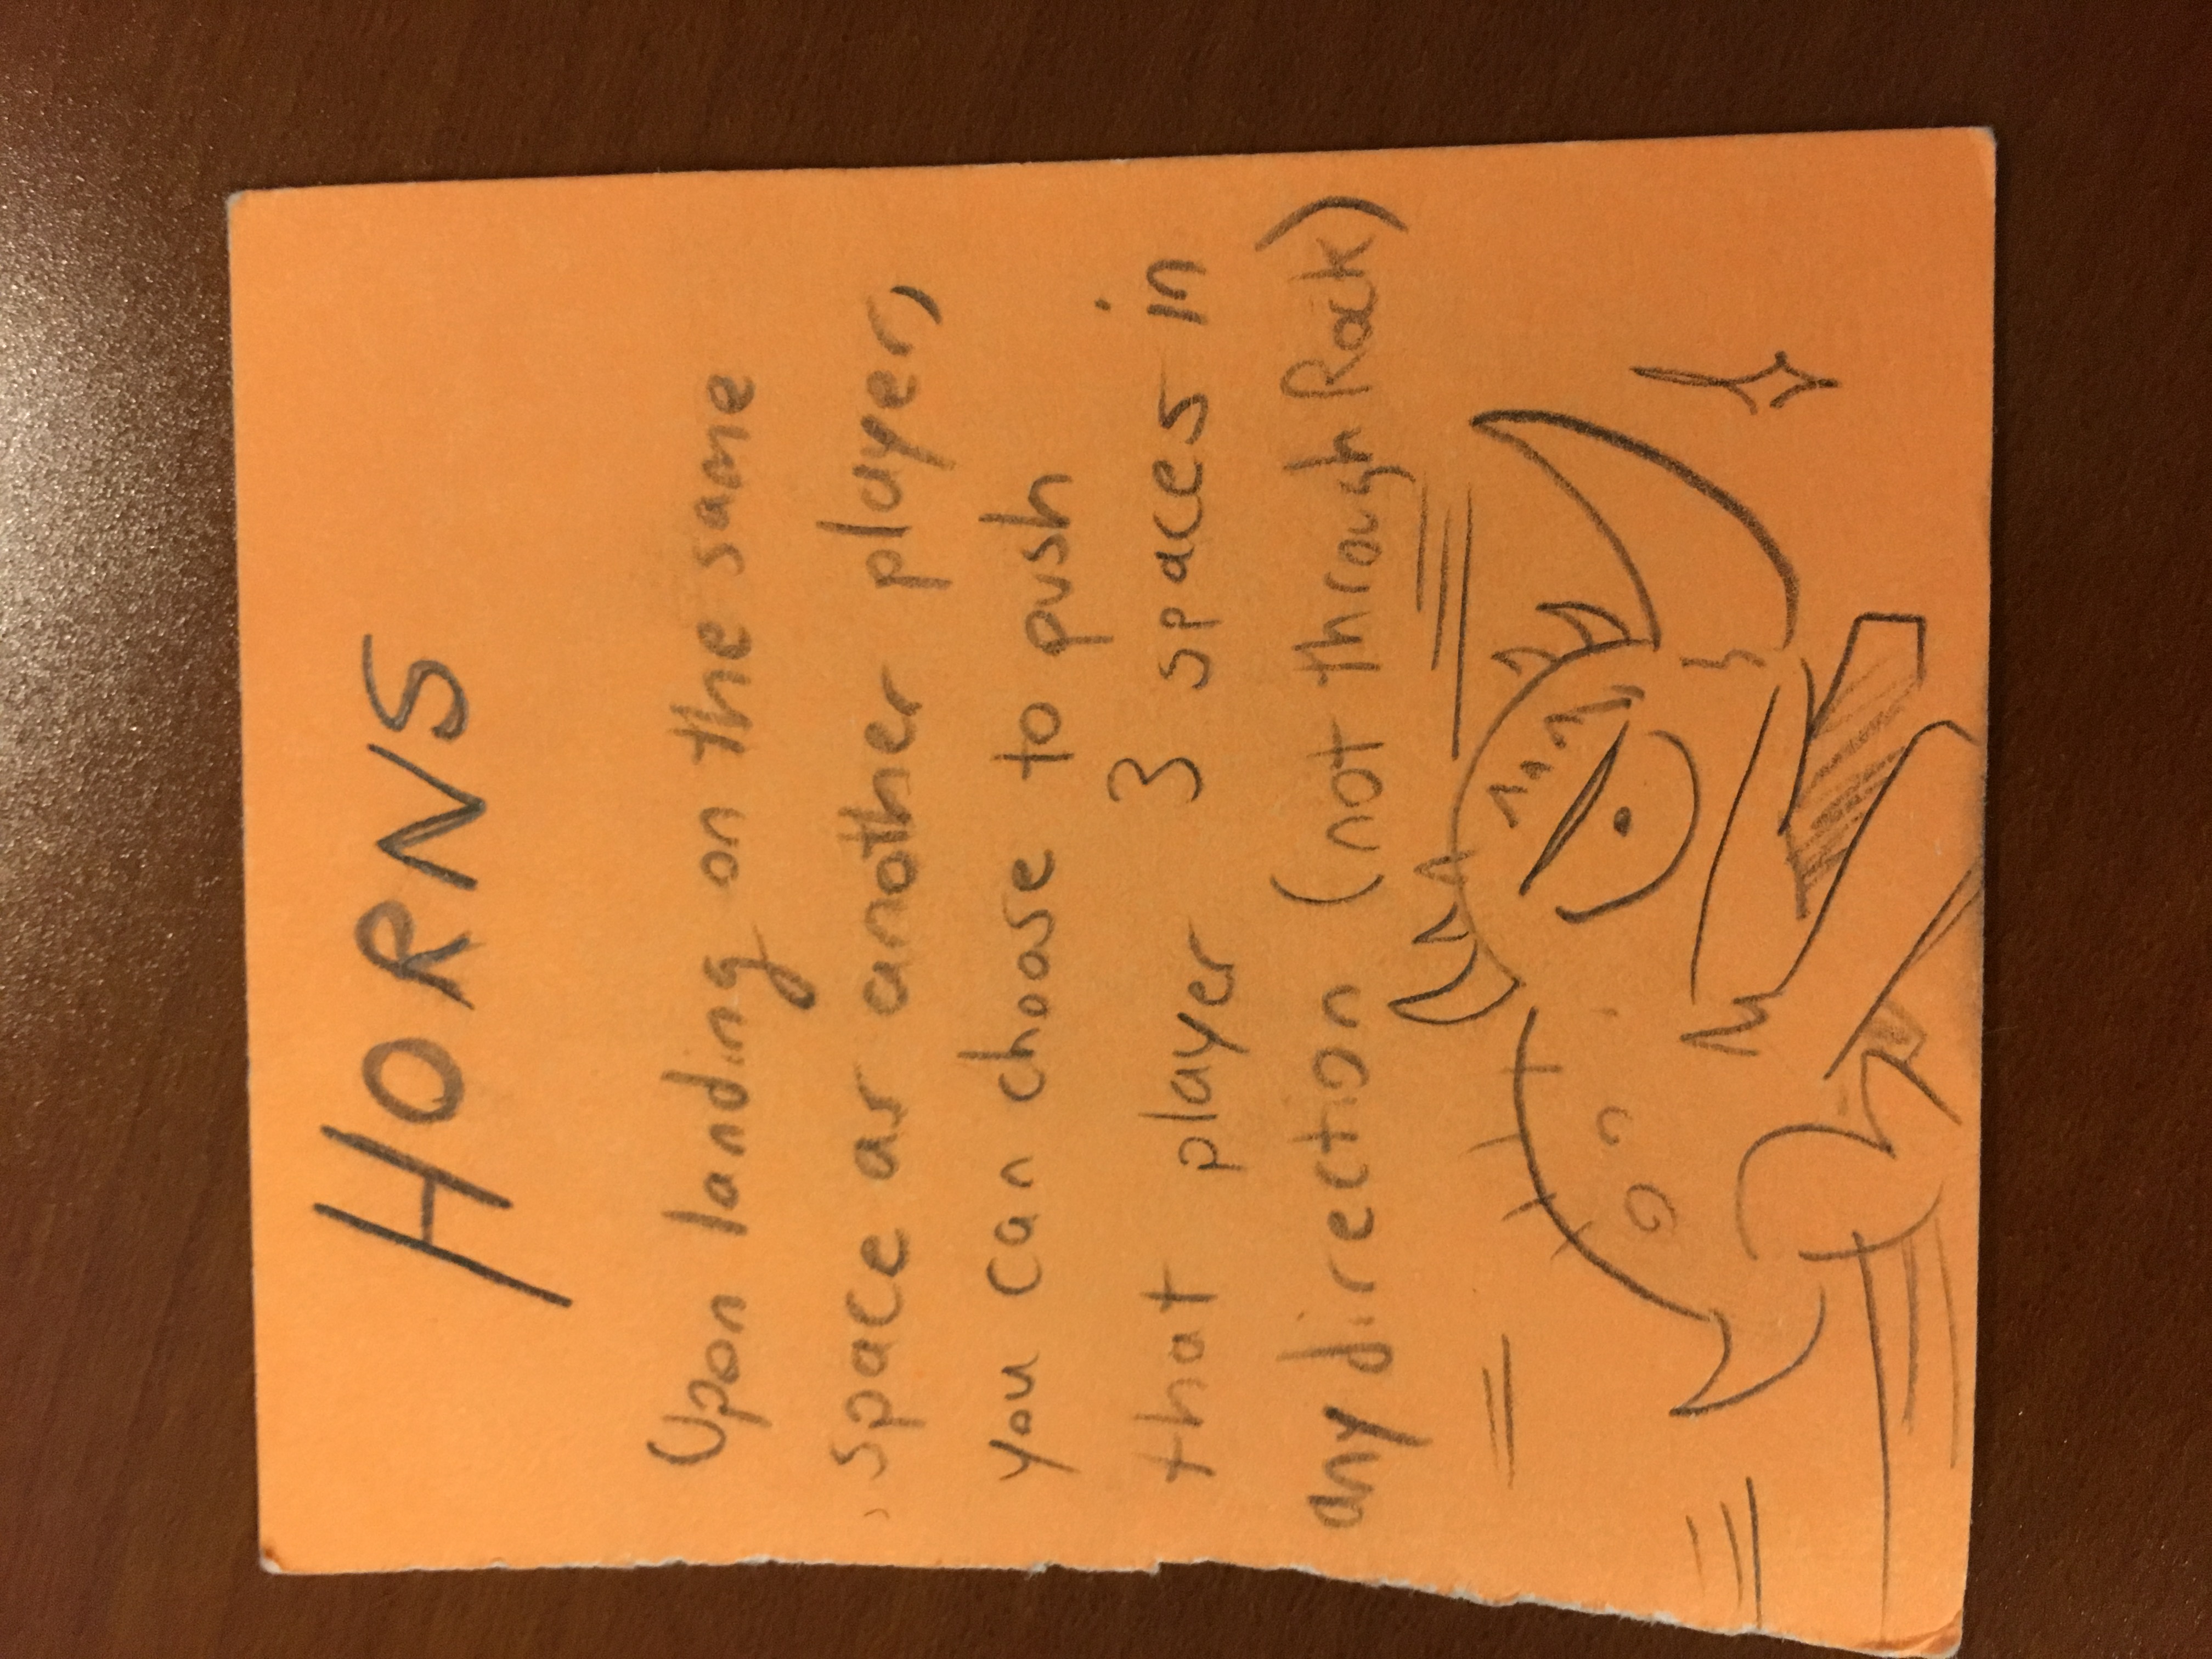 HORNS
Upon landing on the same
space as another player,
you can choose to push
that player 3 spaces in
any direction (not through Rock)